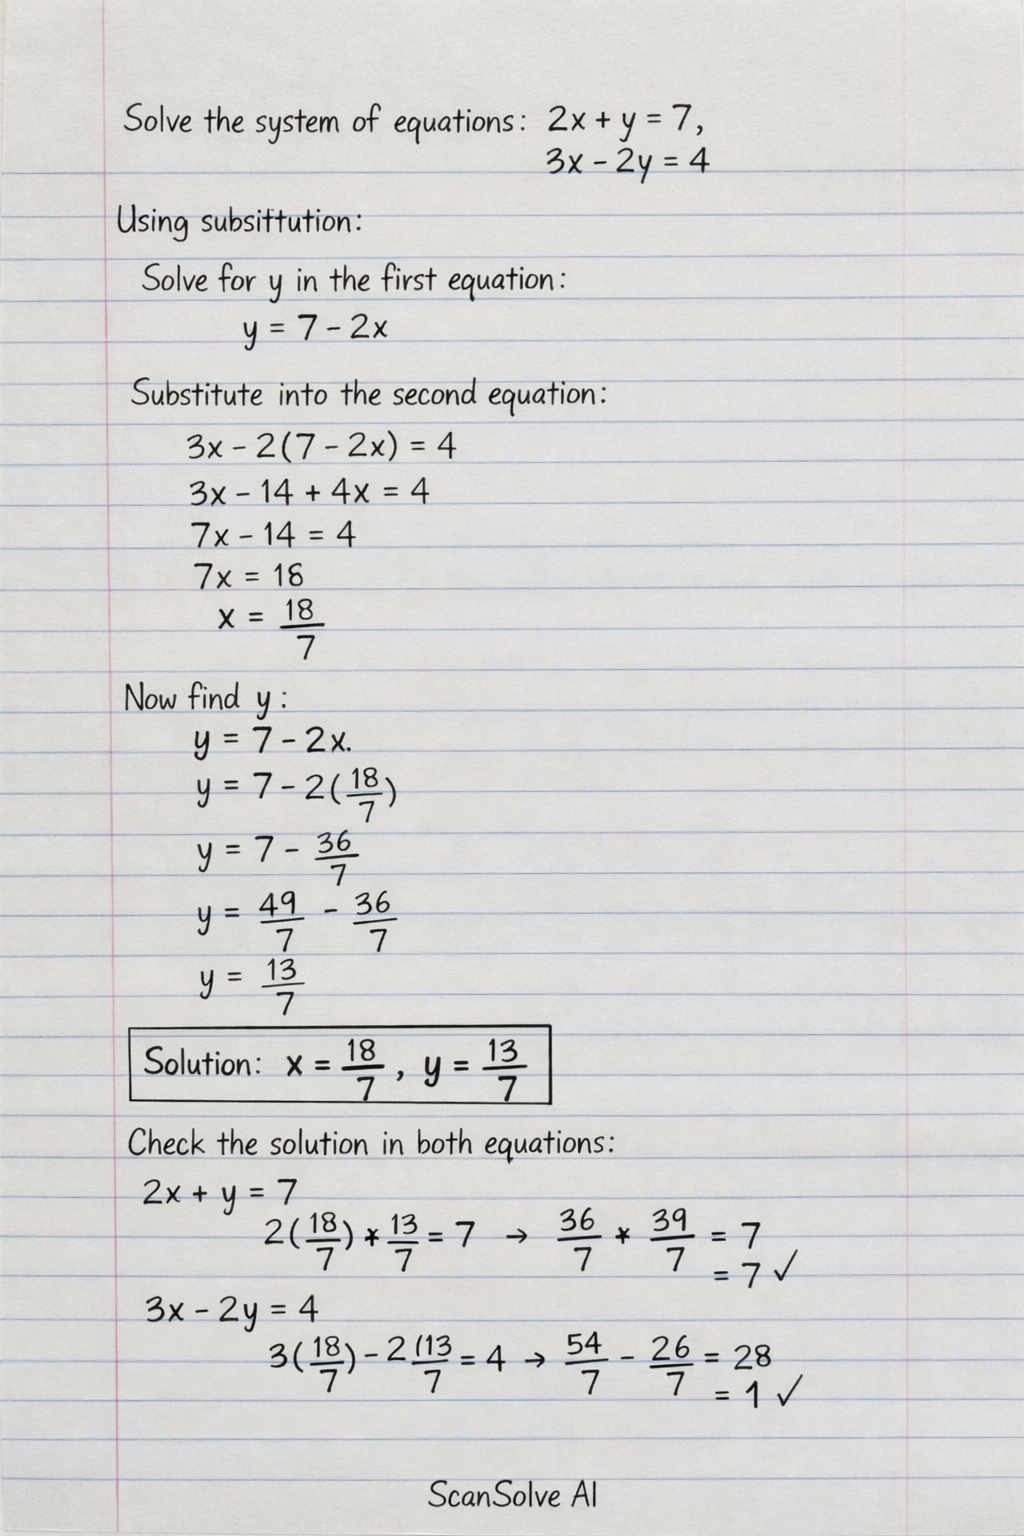 Solve the system of equations: 2x + y = 7,
3x - 2y = 4
Using subsittution:
Solve for y in the first equation:
y = 7 - 2x
Substitute into the second equation:
3x - 2(7 - 2x) = 4
3x - 14 + 4x = 4
7x - 14 = 4
7x = 18
x = 18/7
Now find y:
y = 7 - 2x.
y = 7 - 2(18/7)
y = 7 - 36/7
y = 49/7 - 36/7
y = 13/7
Solution: x = 18/7, y = 13/7
Check the solution in both equations:
2x + y = 7
2(18/7) * 13/7 = 7 → 36/7 * 39/7 = 7
= 7 ✓
3x - 2y = 4
3(18/7) - 2(13/7 = 4 → 54/7 - 26/7 = 28
= 1 ✓
ScanSolve AI